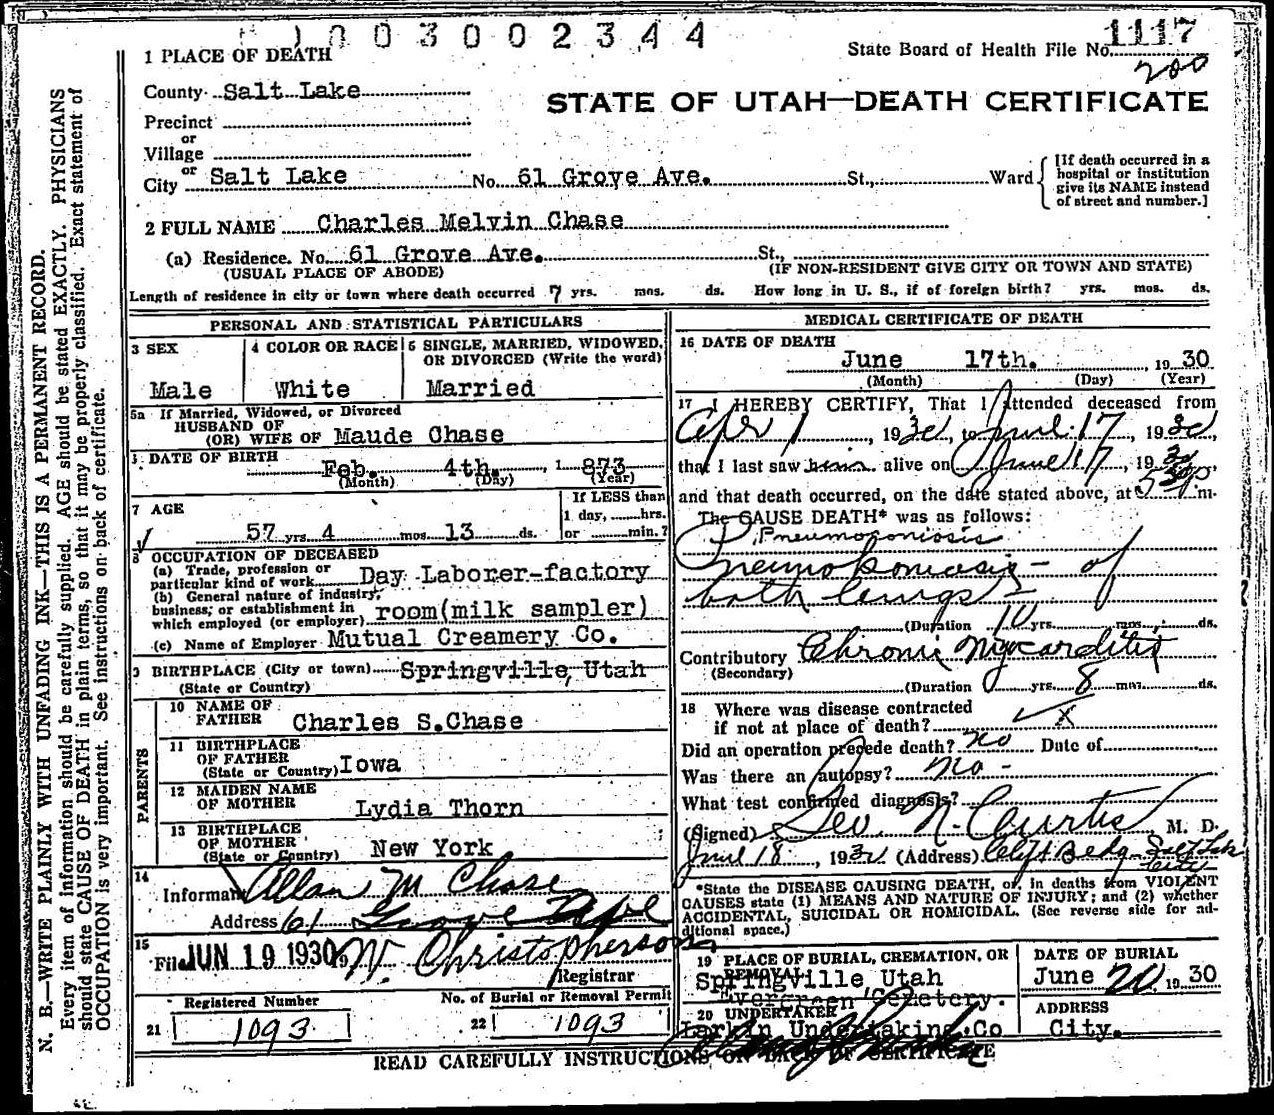 1003002344
State Board of Health File No. 1117
200
1 PLACE OF DEATH
County Salt Lake
STATE OF UTAH—DEATH CERTIFICATE
Precinct
or
Village
or
City Salt Lake No. 61 Grove Ave. St., Ward
[If death occurred in a hospital or institution give its NAME instead of street and number.]
2 FULL NAME Charles Melvin Chase
(a) Residence. No. 61 Grove Ave. St.,
(USUAL PLACE OF ABODE) (IF NON-RESIDENT GIVE CITY OR TOWN AND STATE)
Length of residence in city or town where death occurred 7 yrs. mos. ds. How long in U. S., if of foreign birth? yrs. mos. ds.
PERSONAL AND STATISTICAL PARTICULARS
3 SEX
Male
4 COLOR OR RACE
White
5 SINGLE, MARRIED, WIDOWED, OR DIVORCED (Write the word)
Married
5a If Married, Widowed, or Divorced
HUSBAND OF
(OR) WIFE OF Maude Chase
DATE OF BIRTH
Feb. 4th. 1 873
(Month) (Day) (Year)
7 AGE
57 yrs 4 mos. 13 ds.
If LESS than
1 day, hrs.
or min.?
8 OCCUPATION OF DECEASED
(a) Trade, profession or
particular kind of work Day Laborer-factory
(b) General nature of industry,
business, or establishment in
which employed (or employer) room(milk sampler)
(c) Name of Employer Mutual Creamery Co.
9 BIRTHPLACE (City or town) Springville, Utah
(State or Country)
PARENTS
10 NAME OF
FATHER Charles S.Chase
11 BIRTHPLACE
OF FATHER
(State or Country) Iowa
12 MAIDEN NAME
OF MOTHER Lydia Thorn
13 BIRTHPLACE
OF MOTHER
(State or Country) New York
14
Informant Allan M Chase
Address 61 Grove Ave
15
Filed JUN 19 1930 W. Christopherson
Registrar
Registered Number
21 1093
No. of Burial or Removal Permit
22 1093
MEDICAL CERTIFICATE OF DEATH
16 DATE OF DEATH
June 17th. 19 30
(Month) (Day) (Year)
17 I HEREBY CERTIFY, That I Attended deceased from
Apr 1, 1930, to June 17, 1930,
that I last saw him alive on June 17, 1930,
and that death occurred, on the date stated above, at 5 30 p m.
The CAUSE DEATH* was as follows:
Pneumoconiosis
Pneumokoniosis - of
both lungs -
(Duration 10 yrs. mos. ds.
Contributory Chronic Myocarditis
(Secondary)
(Duration yrs. 8 mos. ds.
18 Where was disease contracted
if not at place of death? X
Did an operation precede death? no Date of
Was there an autopsy? no -
What test confirmed diagnosis?
(Signed) Geo. N. Curtis M. D.
June 18, 1930 (Address) Clift Bldg Salt Lk City
*State the DISEASE CAUSING DEATH, or, in deaths from VIOLENT
CAUSES state (1) MEANS AND NATURE OF INJURY; and (2) whether
ACCIDENTAL, SUICIDAL OR HOMICIDAL. (See reverse side for ad-
ditional space.)
19 PLACE OF BURIAL, CREMATION, OR
REMOVAL
Springville Utah
Evergreen Cemetery.
DATE OF BURIAL
June 20, 19 30
20 UNDERTAKER
Larkin Undertaking Co
ADDRESS
City.
READ CAREFULLY INSTRUCTIONS ON BACK OF CERTIFICATE
N. B.—WRITE PLAINLY WITH UNFADING INK—THIS IS A PERMANENT RECORD.
Every item of information should be carefully supplied. AGE should be stated EXACTLY. PHYSICIANS
should state CAUSE OF DEATH in plain terms, so that it may be properly classified. Exact statement of
OCCUPATION is very important. See instructions on back of certificate.